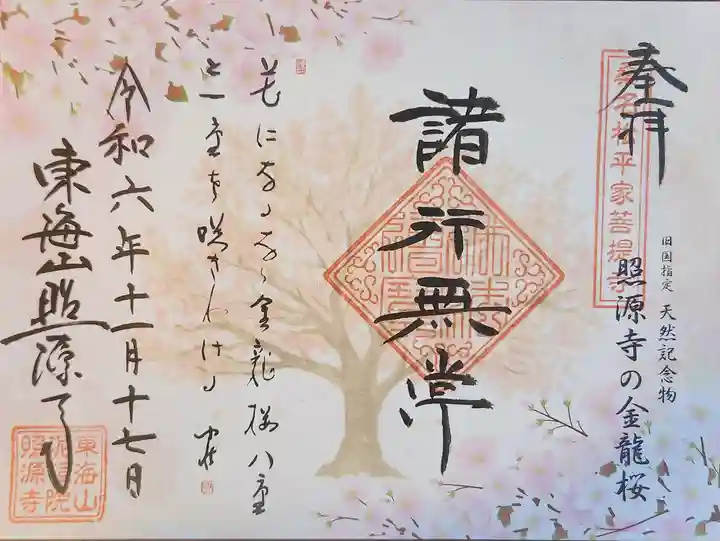 奉拝
桑名松平家菩提寺
旧国指定 天然記念物
照源寺の金龍桜
諸行無常
花になるなら金龍桜八重
も一重も咲きわける
令和六年十一月十七日
東海山照源寺
東海山
照源寺